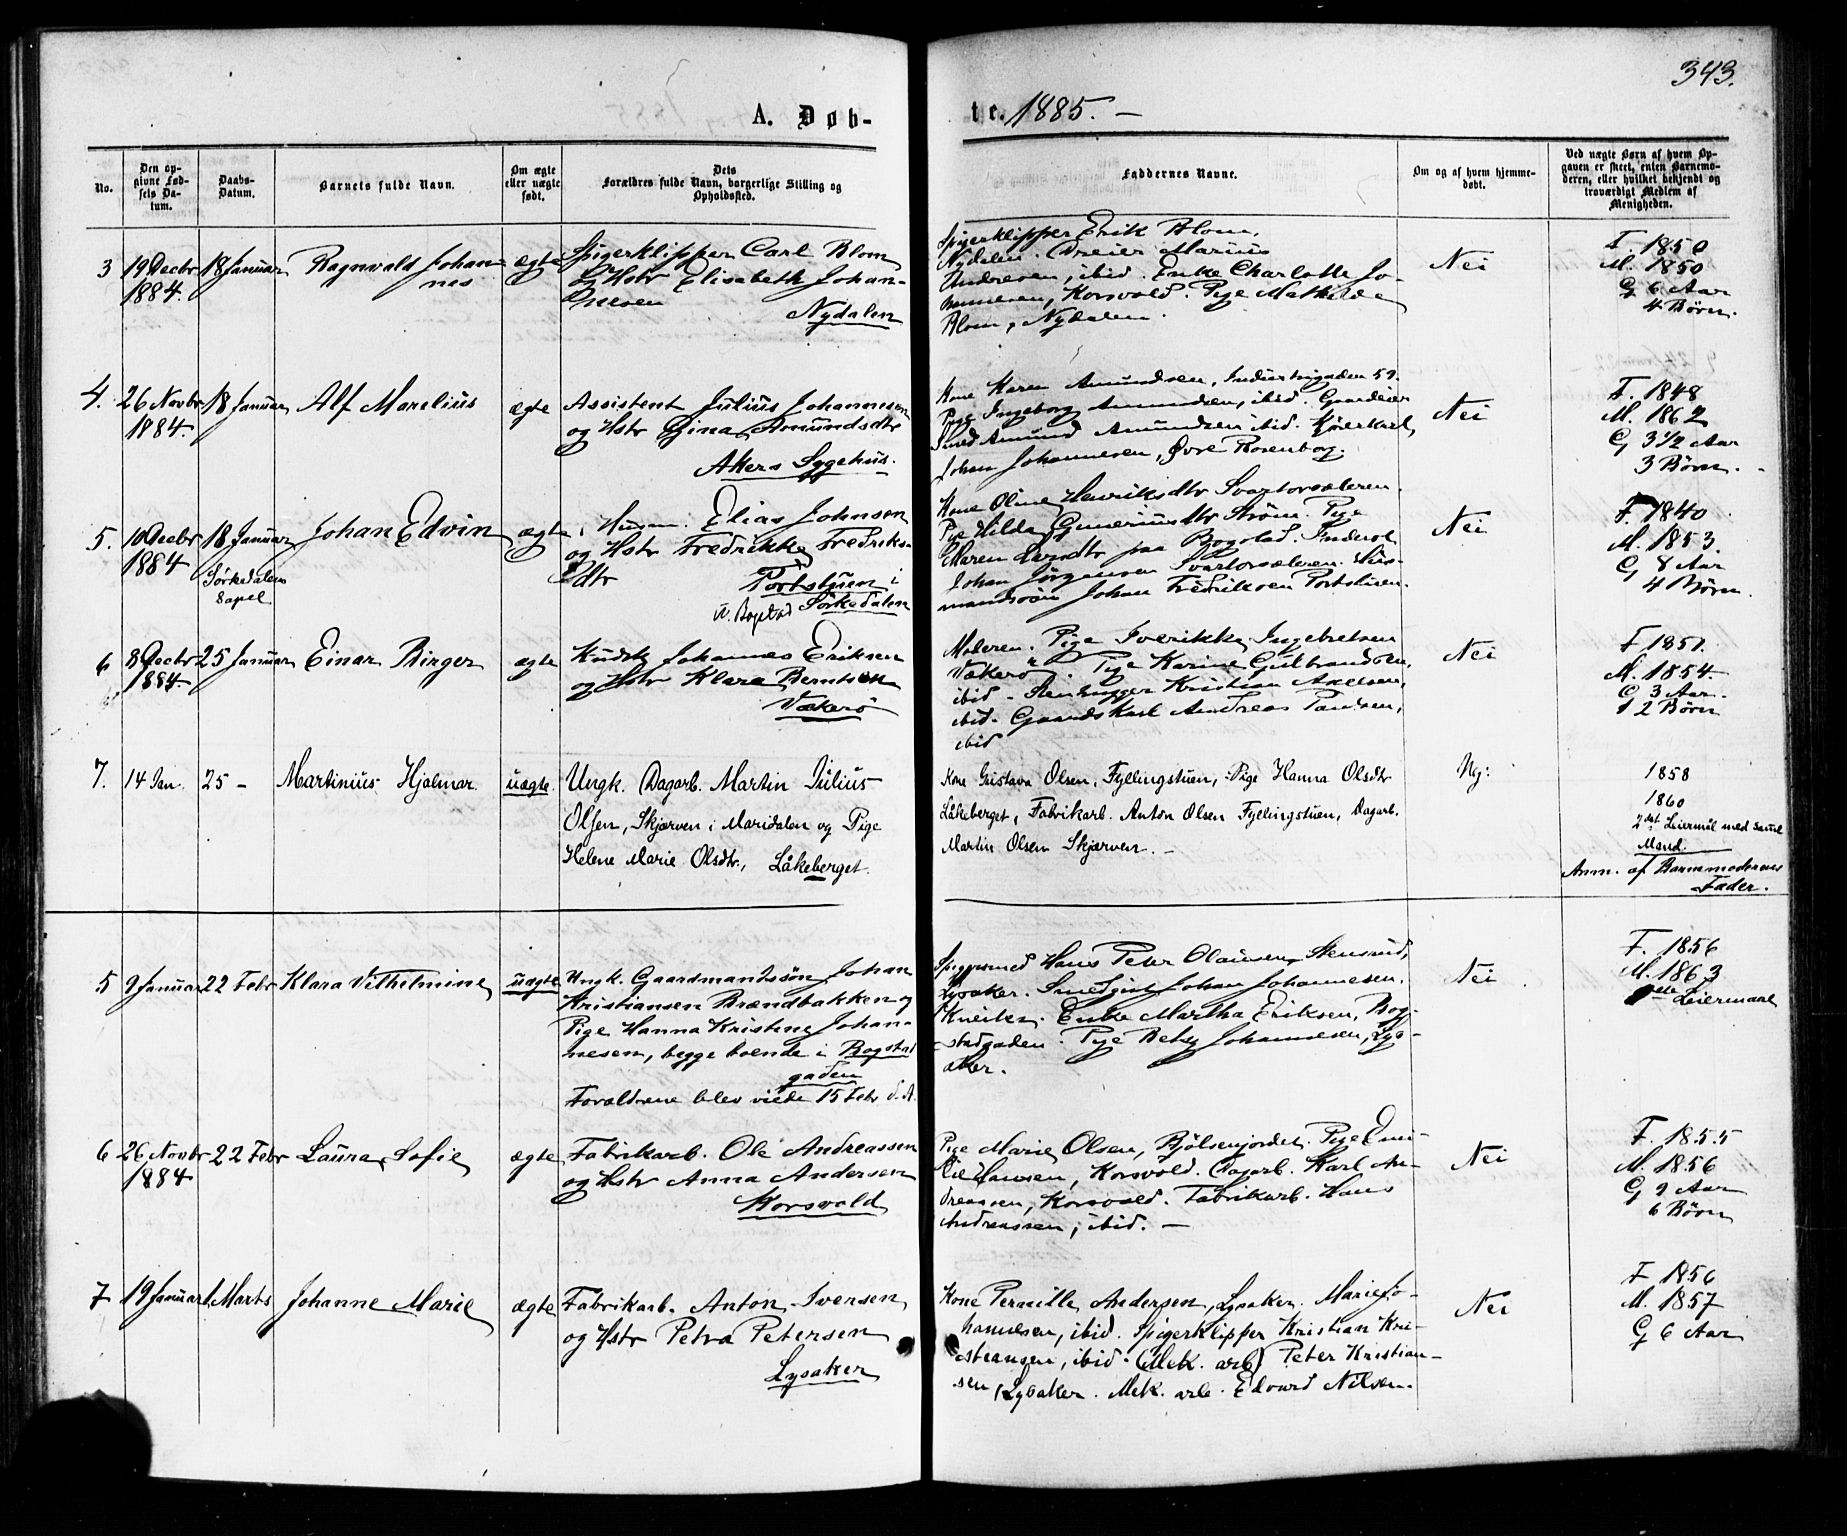 343.
A. Døb-
te. 1885. –
No.
Den op-
givne Fød-
sels Da-
tum.
Daabs-
Datum.
Barnets fulde Navn.
Om ægte
eller uægte
født.
Dets
Forældres fulde Navn, borgerlige Stilling og
Opholdssted.
Faddernes Navne.
Om og af hvem hjemme-
døbt.
Ved uægte Børn af hvem Op-
gaven er skeet, enten Barnemo-
deren, eller hvilket bekjendt og
troværdigt Medlem af
Menigheden.
3
19 Decbr
1884.
18 Januar
Ragnvald Johan-
nes
ægte
Spigerklipper Carl Blom
& Hstr Elisabeth Johan-
nesen
Nydalen
Spigerklipper Erik Blom,
Nydalen. Dreier Marius
Andresen, ibid. Enke Charlotte Jo-
hannesen, Korsvold. Pige Mathilde
Blom, Nydalen.
Nei
F. 1850
M. 1850
G 6 Aar
4 Børn.
4.
26 Novbr
1884.
18 Januar
Alf Marelius
ægte
Assistent Julius Johannesen
og Hstr Gina Amundsdtr
Akers Sygehus.
Kone Karen Amundsen, Industrigaden 59.
Pige Ingeborg Amundsen, ibid. Gaardeier
Smed Amund Amundsen ibid. Kjørekarl
Johan Johannesen, Øvre Rosenborg.
Nei
F. 1848
M. 1862
G 3 1/2 Aar
3 Børn.
5.
10 Decbr
1884
18 Januar
Sørkedalens
Capel
Johan Edvin
ægte
Husm. Elias Johnsen
og Hstr Fredrikke Fredriks-
dtr
Portstuen i
v. Bogstad Sørkedalen
Kone Oline Henriksdtr Svartorsæteren.
Pige Hilda Gunerius dtr Strøm. Pige
Maren Larsdtr paa Bogstad. Inderst
Johan Jørgensen Svartorsæteren. Hus-
mandssøn Johan Fredriksen Portstuen.
Nei
F. 1840
M. 1853.
G 8 Aar
4 Børn.
6
8 Decbr
1884.
25 Januar
Einar Birger
ægte
Kudsk Johannes Eriksen
og Hstr Klara Berntsen
Vækerø
Moderen. Pige Sverikke Ingebretsen
Vækerø. Pige Karine Gulbrandsen,
ibid. Stenhugger Kristian Axelsen,
ibid. Gaardskarl Andreas Paulsen,
ibid
Nei
F 1851.
M. 1854.
G 3 Aar.
2 Børn
7.
14 Jan.
25 –
Martinius Hjalmar.
uægte.
Ungk. Dagarb. Martin Julius
Olsen, Skjærven i Maridalen og Pige
Helene Marie Olsdtr., Låkeberget.
Kone Gustava Olsen, Fyllingstuen, Pige Hanna Olsdtr
Låkeberget, Fabrikarb. Anton Olsen Fyllingstuen, Dagarb.
Martin Olsen Skjærven. –
Nej:
1858
1860
2det Leiermål med samme
Mand.
Anm. af Barnemoderens
Fader.
5
9 Januar
22 Febr
Klara Vilhelmine
uægte
Ungk. Gaardmandssøn Johan
Kristiansen Brændbakken og
Pige Hanna Kristine Johan-
nesen, begge boende i Bogstad
gaden
Forældrene blev viede 15 Febr d. A.
Spigersmed Hans Peter Olausen, Stensrud,
Lysaker. Smedgut Johan Johannesen.
Enke Martha Eriksen, Bog-
stadgaden. Pige Betzy Johannesen, Lys-
aker.
Nei
F. 1856
M. 1863
Leiermaal
6
26 Novbr
1884
22 Febr
Laura Sofie
ægte
Fabrikarb. Ole Andreassen
og Hstr Anna Andersen
Korsvold
Pige Marie Olsen, Bjølsenjordet. Pige Emi-
lie Hansen, Korsvold. Dagarb. Karl An-
dreassen, Korsvold. Fabrikarb. Hans
Andreassen, ibid. –
Nei
F. 1855
M. 1856
G 9 Aar
6 Børn
7
19 Januar
1. Marts
Johanne Marie
ægte
Fabrikarb. Anton Iversen
og Hstr Petra Petersen
Lysaker
Kone Pernille Andersen, Lysaker. Marie Jo-
hannesen, ibid. Spigerklipper Kristian Kri-
stiansen, ibid. (Mek. arb) Peter Kristian-
sen, Lysaker. Mek. arb. Edvard Nilsen.
Nei
F 1856
M. 1857
G 6 Aar